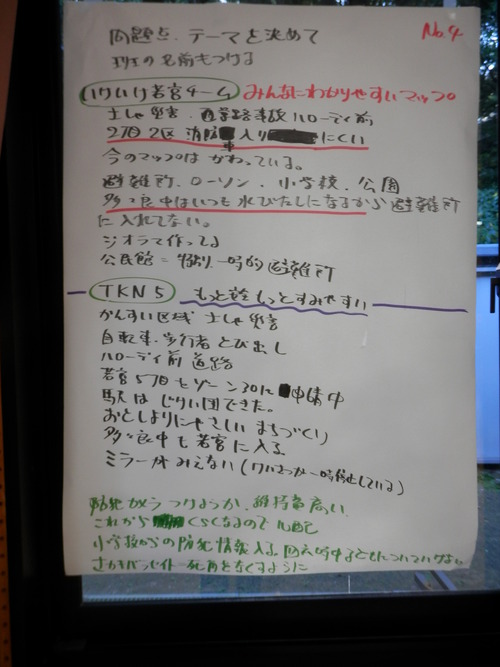 No.4
問題点、テーマを決めて
班の名前もつける
いけいけ若宮チーム みんなにわかりやすいマップ。
土しゃ災害・通学路事故 ハローディ前
2丁目2区 消防車入りにくい
今のマップはかわっている。
避難所、ローソン、小学校、公園
多々良中はいつも水びたしになるから避難所
に入れてない。
ジオラマ作ってる
公民館=一時的避難所
TKN5 もっと詮もっとすみやすい
かんすい区域 土しゃ災害
自転車・歩行者 とび出し
ハローディ前 道路
若宮5丁目 ゾーン30に 申請中
駅は じりい団できた。
おとしよりにやさしい まちづくり
多々良中も若宮に入る
ミラーがみえない(一時停止している)
防犯カメラ つけようか、維持費高い、
これから くらくなるので 心配
小学校からの防犯情報入る。
死角をなくすように